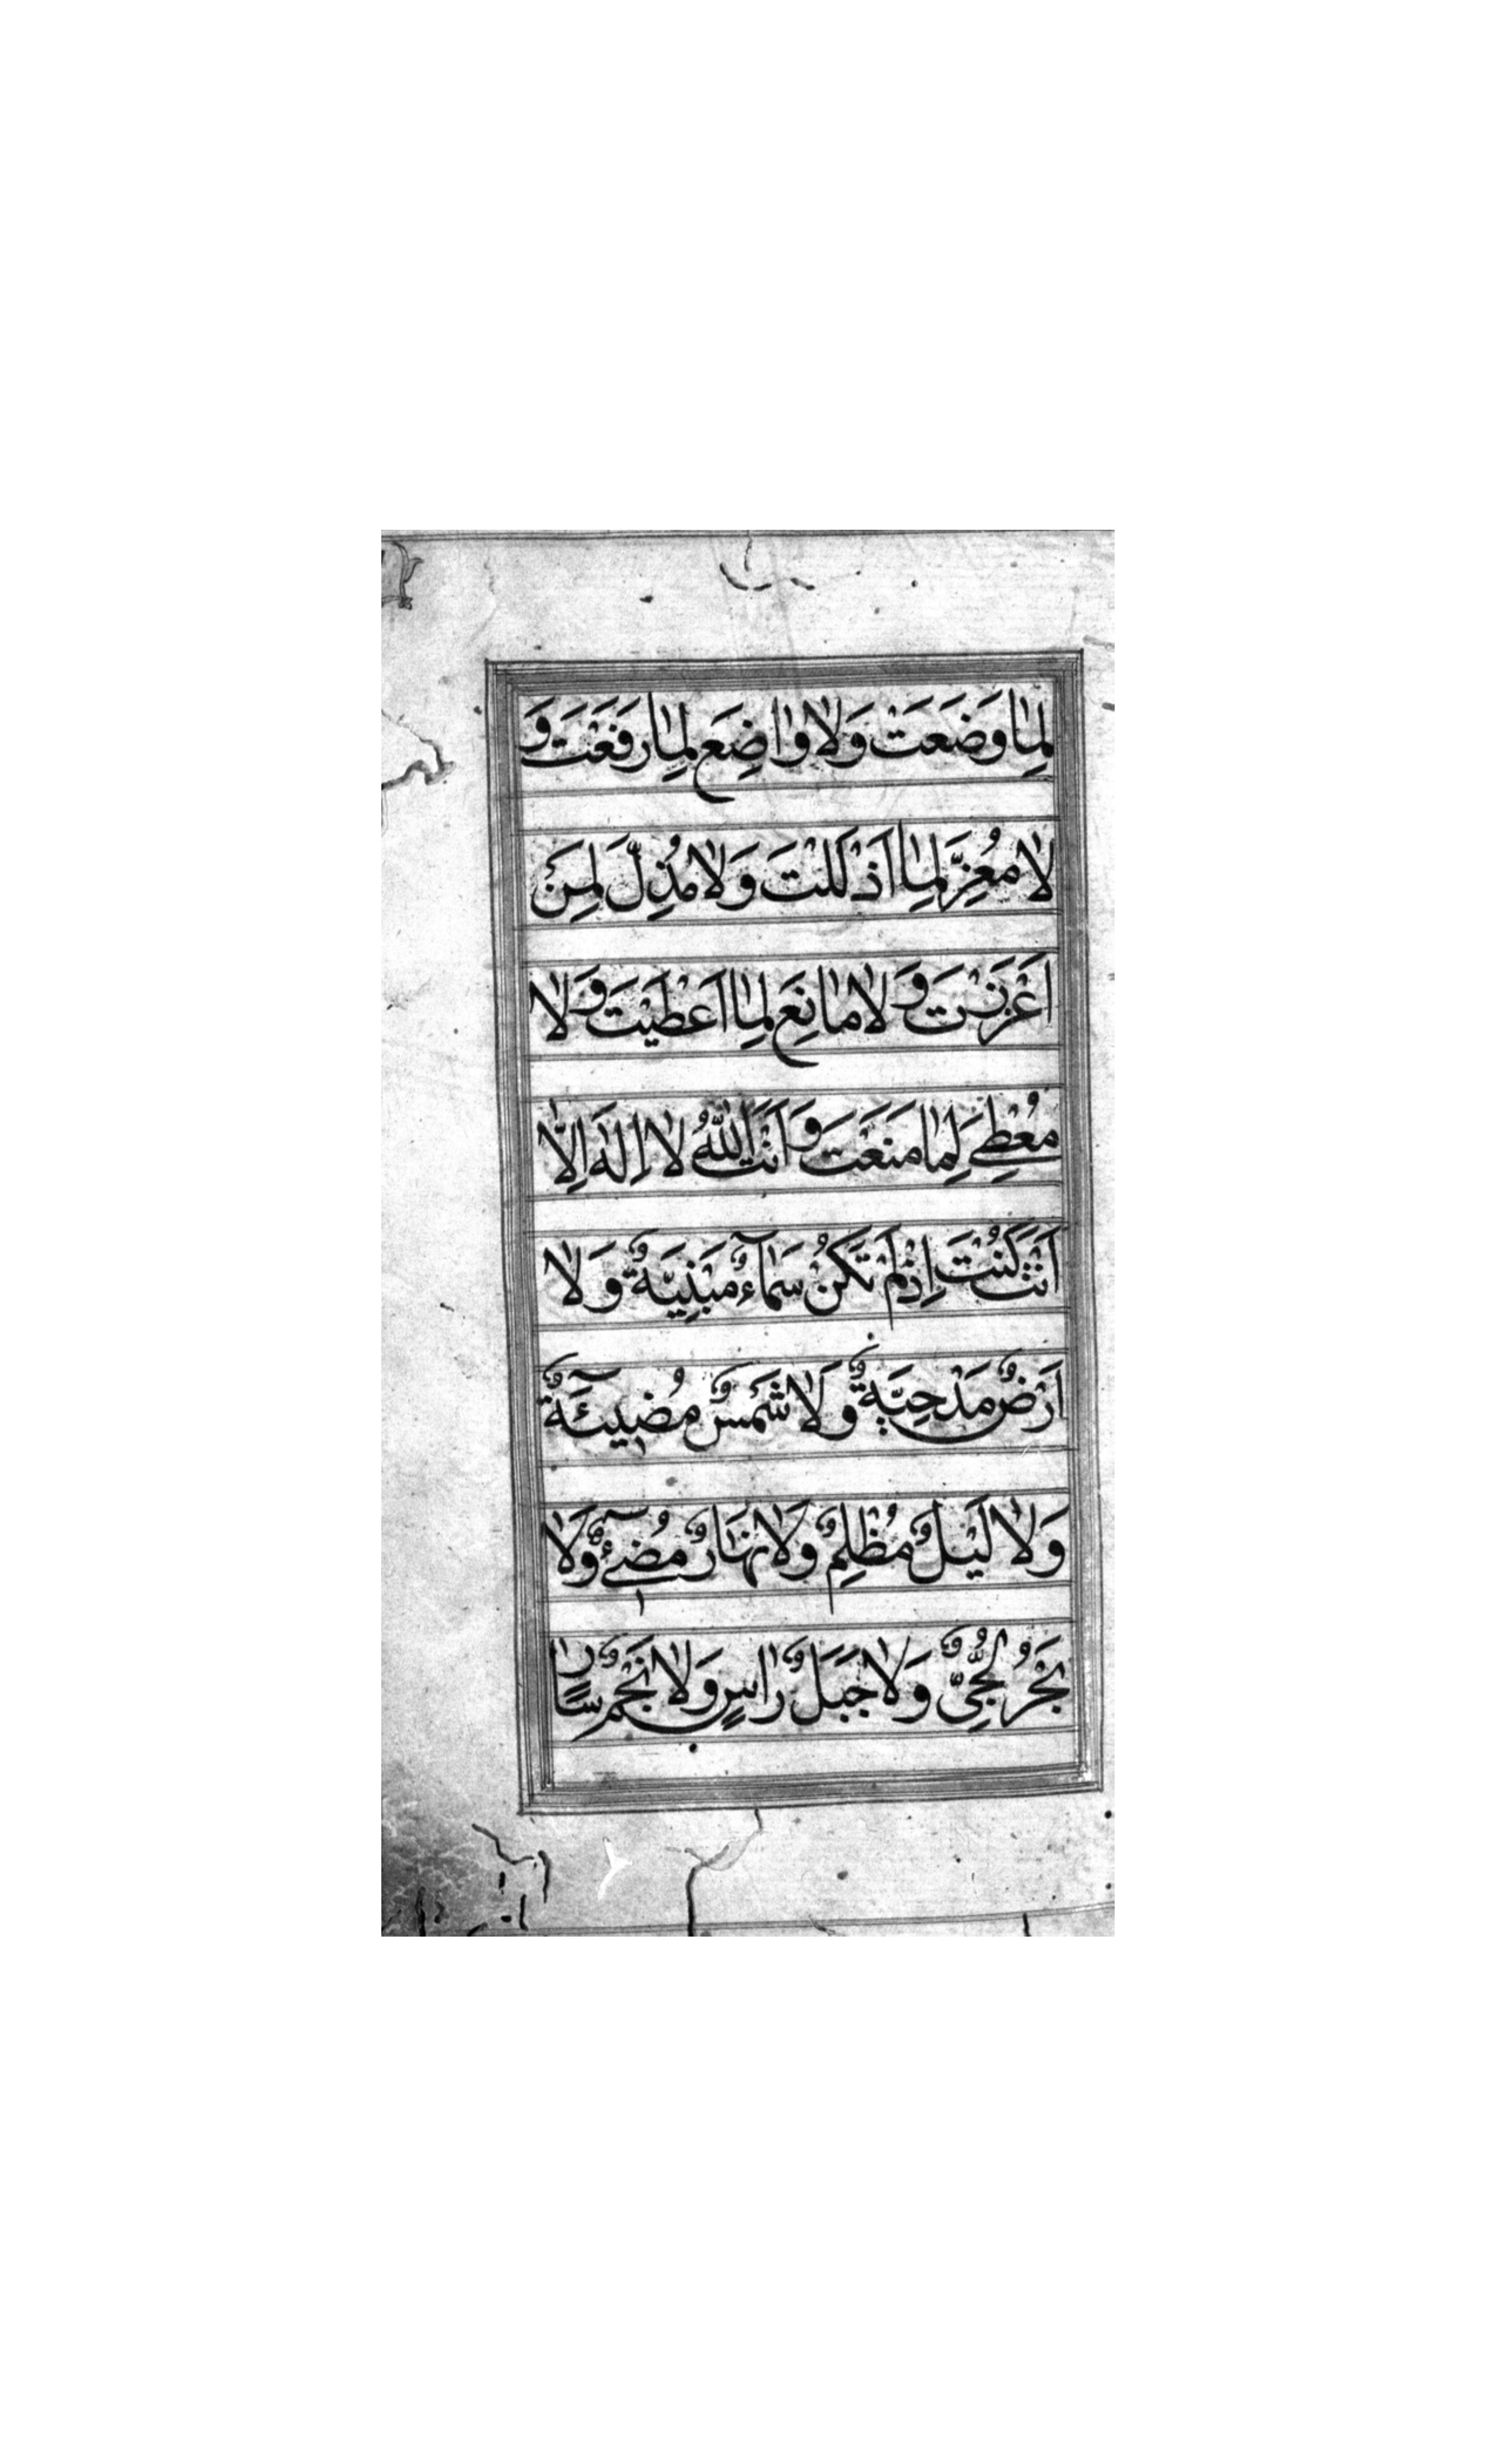 لِمٰا وَضَعَتْ وَلٰا وٰاضِعَ لِمٰا رَفَعَتْ وَ
لٰا مُعِزَّ لِمٰا اَذْلَلْتَ وَلٰا مُذِلَّ لِمَنْ
اَعْزَزْتَ وَلٰا مٰانِعَ لِمٰا اَعْطَيْتَ وَلٰا
مُعْطِيَ لِمٰا مَنَعَتَ وَ اَنْتَ اللّٰهُ لٰا اِلٰهَ اِلّٰا
اَنْتَ كُنْتَ اِذْ لَمْ تَكُنْ سَمٰآءٌ مَبْنِيَّةٌ وَلٰا
اَرْضٌ مَدْحِيَّةٌ وَلٰا شَمْسٌ مُضِيئَةٌ
وَلٰا لَيْلٌ مُظْلِمٌ وَلٰا نَهَارٌ مُضِيٓءٌ وَلٰا
بَحْرٌ لُجِّيٌّ وَلٰا جَبَلٌ رٰاسٍ وَلٰا نَجْمٌ سٰارٍ